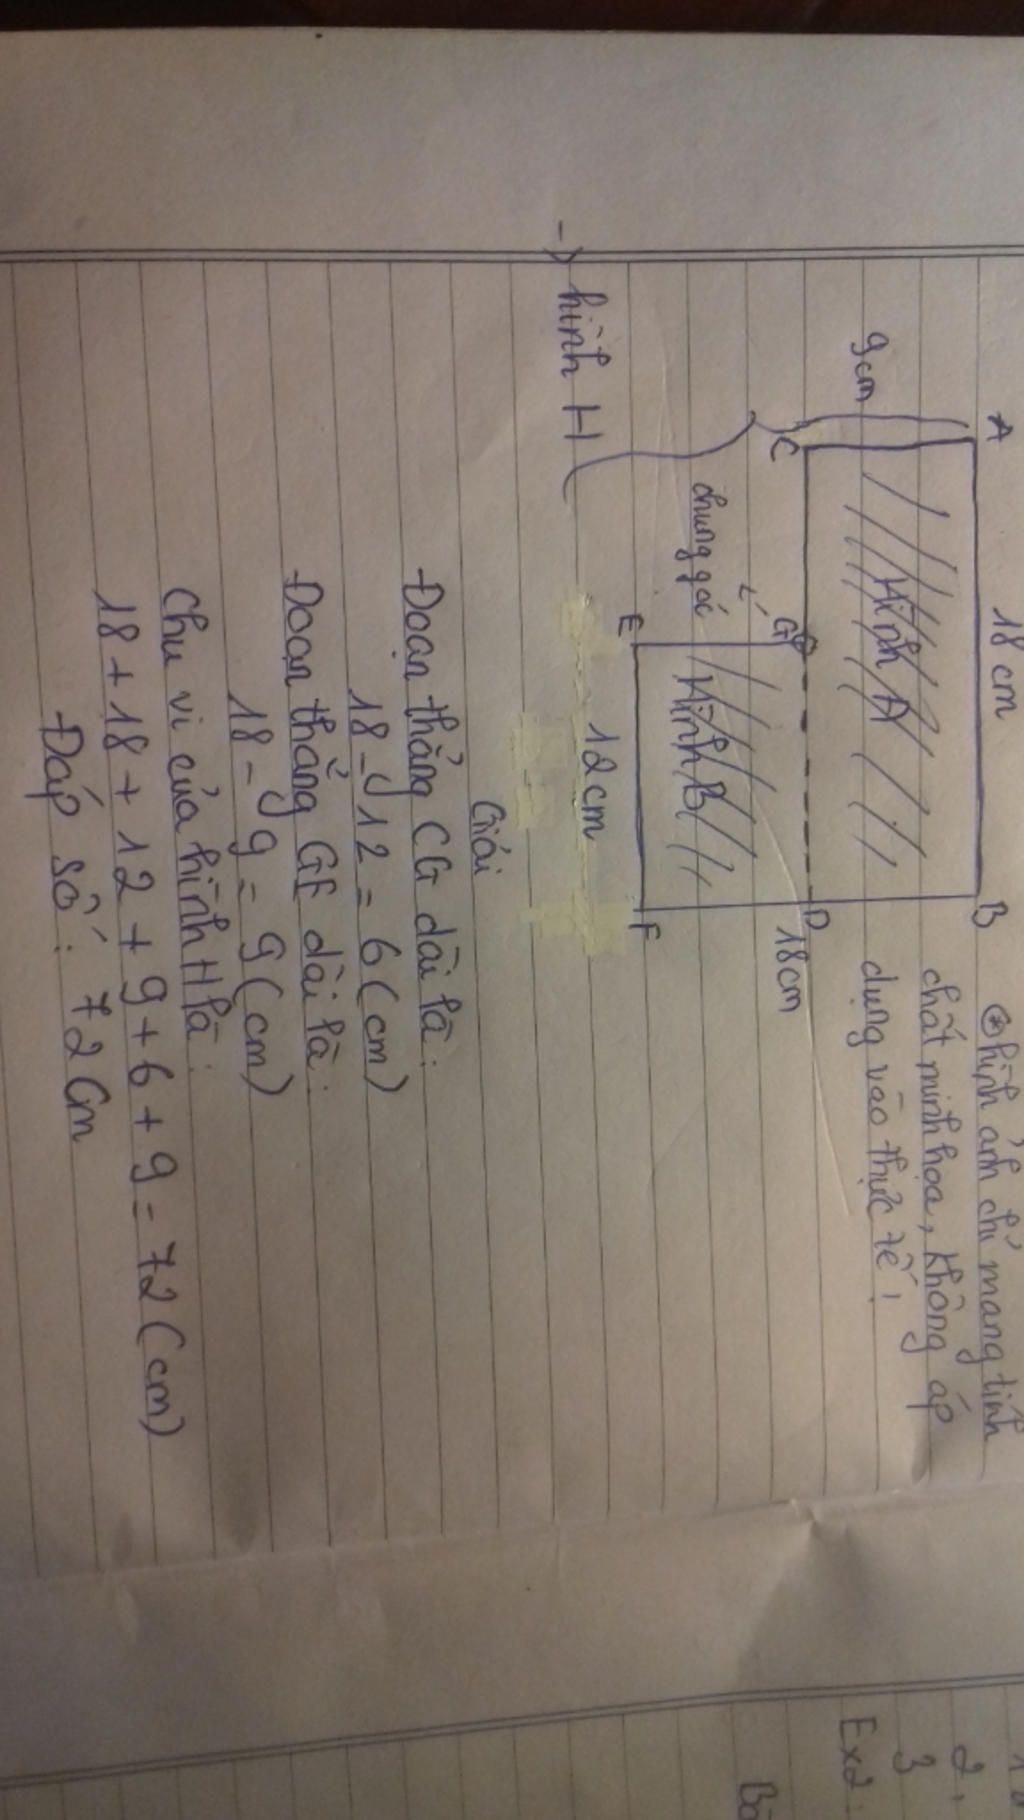 18 cm
A
B
⊛ hình ảnh chỉ mang tính
chất minh họa, không áp
dụng vào thực tế!
9cm
Hình A
C
G
D
18cm
chung gói
Hình B
E
F
12cm
-> hình H
Giải
Đoạn thẳng CG dài là:
18 - 12 = 6 (cm)
Đoạn thẳng GE dài là:
18 - 9 = 9 (cm)
Chu vi của hình H là:
18 + 18 + 12 + 9 + 6 + 9 = 72 (cm)
Đáp số: 72 cm
2.
3
Ex2: